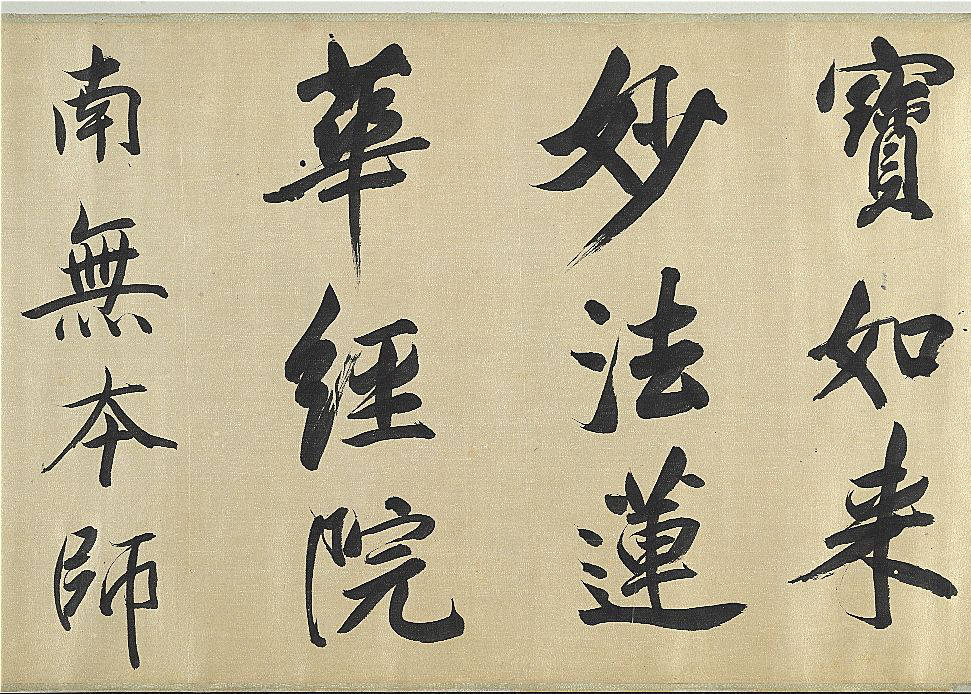 寶如来
妙法蓮
華經院
南無本師